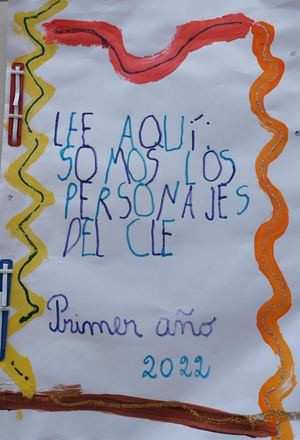 LEE AQUÍ:
SOMOS LOS
PERSONAJES
DEL CLE
Primer año
2022